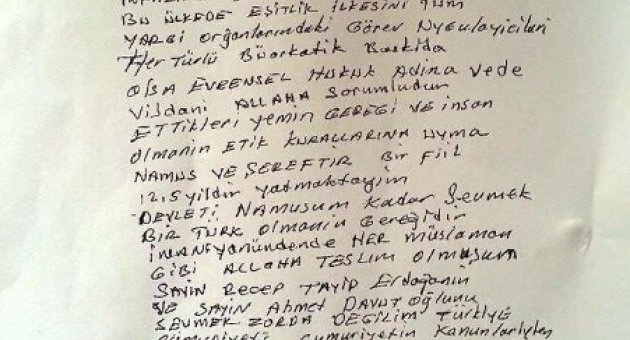 BU ÜLKEDE EŞİTLİK İLKESİNİ TÜM
YARGI Organlarındaki Görev Uygulayicileri
Her Türlü Bürokatik Baskıda
OLSA EVRENSEL HUKUK Adına Vede
Vijdani ALLAHA Sorumludur
ETTİKLERİ yemin GEREĞİ VE insan
Olmanın ETİK KURALLARINA UYMA
NAMUS VE ŞEREFTİR Bir Fiil
12,5 yıldır yatmaktayım
DEVLETİ NAMUSUM Kadar Sevmek
BİR TÜRK olmanın Gereğidir
HER Müslaman
GİBİ ALLAHA TESLİM Olmuşum
SAYIN RECEP TAYİP Erdoğanın
VE SAYIN Ahmet DAVUT oğlunu
SEVMEK ZORDA DEĞİLİM TÜRKİYE
Cumuriyetin Kanunlarıyla